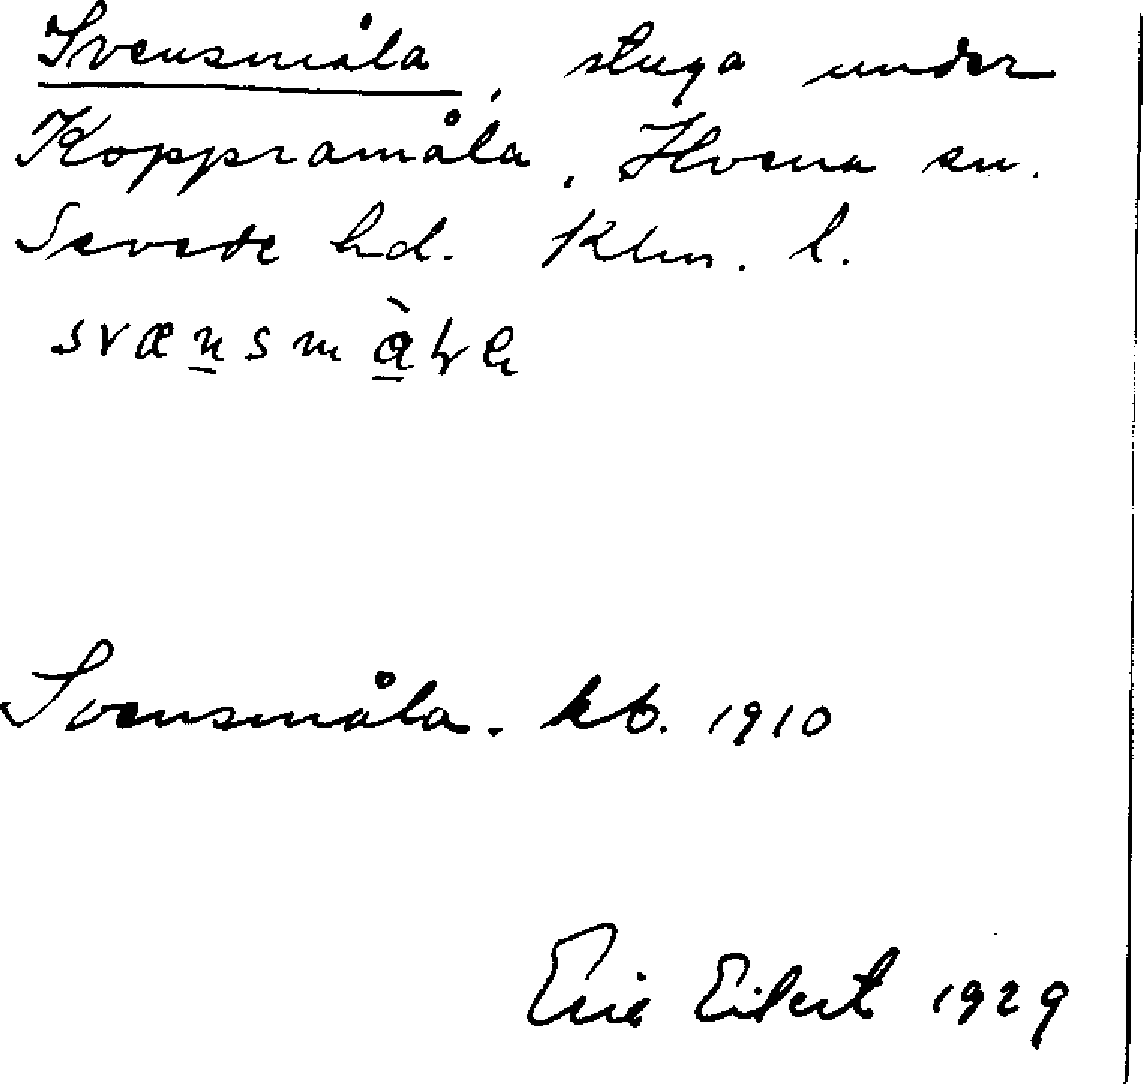 Svensmåla, stuga under
Koppramåla, Hvena sn.
Sevede hd. Klm. l.
Svensmåla. kb. 1910
Eric Eilert 1929